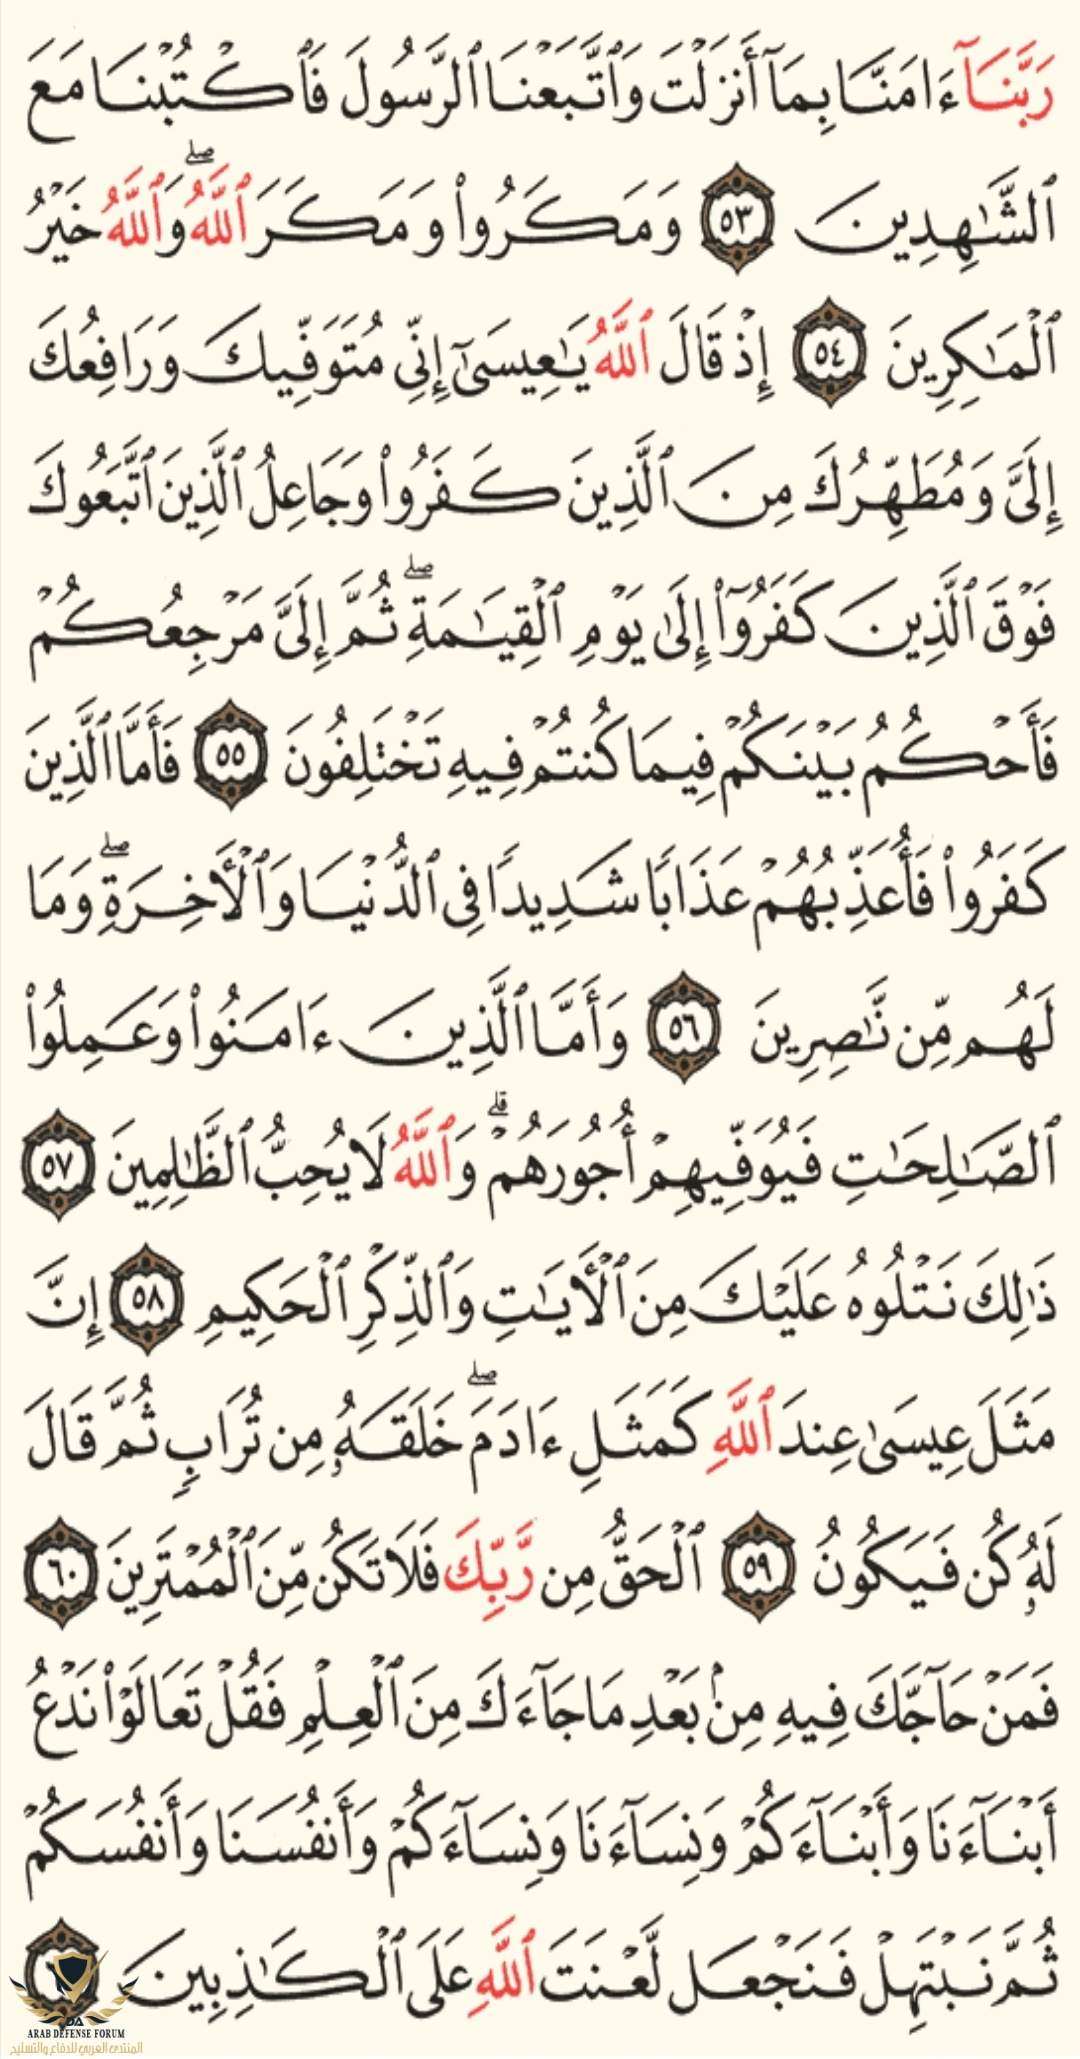 رَبَّنَآ ءَامَنَّا بِمَآ أَنزَلْتَ وَٱتَّبَعْنَا ٱلرَّسُولَ فَٱكْتُبْنَا مَعَ
ٱلشَّٰهِدِينَ ٥٣ وَمَكَرُوا۟ وَمَكَرَ ٱللَّهُ ۖ وَٱللَّهُ خَيْرُ
ٱلْمَٰكِرِينَ ٥٤ إِذْ قَالَ ٱللَّهُ يَٰعِيسَىٰٓ إِنِّى مُتَوَفِّيكَ وَرَافِعُكَ
إِلَىَّ وَمُطَهِّرُكَ مِنَ ٱلَّذِينَ كَفَرُوا۟ وَجَاعِلُ ٱلَّذِينَ ٱتَّبَعُوكَ
فَوْقَ ٱلَّذِينَ كَفَرُوٓا۟ إِلَىٰ يَوْمِ ٱلْقِيَٰمَةِ ۖ ثُمَّ إِلَىَّ مَرْجِعُكُمْ
فَأَحْكُمُ بَيْنَكُمْ فِيمَا كُنتُمْ فِيهِ تَخْتَلِفُونَ ٥٥ فَأَمَّا ٱلَّذِينَ
كَفَرُوا۟ فَأُعَذِّبُهُمْ عَذَابًا شَدِيدًا فِى ٱلدُّنْيَا وَٱلْأَخِرَةِ ۖ وَمَا
لَهُم مِّن نَّٰصِرِينَ ٥٦ وَأَمَّا ٱلَّذِينَ ءَامَنُوا۟ وَعَمِلُوا۟
ٱلصَّٰلِحَٰتِ فَيُوَفِّيهِمْ أُجُورَهُمْ ۗ وَٱللَّهُ لَا يُحِبُّ ٱلظَّٰلِمِينَ ٥٧
ذَٰلِكَ نَتْلُوهُ عَلَيْكَ مِنَ ٱلْأَيَٰتِ وَٱلذِّكْرِ ٱلْحَكِيمِ ٥٨ إِنَّ
مَثَلَ عِيسَىٰ عِندَ ٱللَّهِ كَمَثَلِ ءَادَمَ ۖ خَلَقَهُۥ مِن تُرَابٍ ثُمَّ قَالَ
لَهُۥ كُن فَيَكُونُ ٥٩ ٱلْحَقُّ مِن رَّبِّكَ فَلَا تَكُن مِّنَ ٱلْمُمْتَرِينَ ٦٠
فَمَنْ حَآجَّكَ فِيهِ مِنۢ بَعْدِ مَا جَآءَكَ مِنَ ٱلْعِلْمِ فَقُلْ تَعَالَوْا۟ نَدْعُ
أَبْنَآءَنَا وَأَبْنَآءَكُمْ وَنِسَآءَنَا وَنِسَآءَكُمْ وَأَنفُسَنَا وَأَنفُسَكُمْ
ثُمَّ نَبْتَهِلْ فَنَجْعَل لَّعْنَتَ ٱللَّهِ عَلَى ٱلْكَٰذِبِينَ
ARAB DEFENSE FORUM
المنتدى العربي للدفاع والتسليح